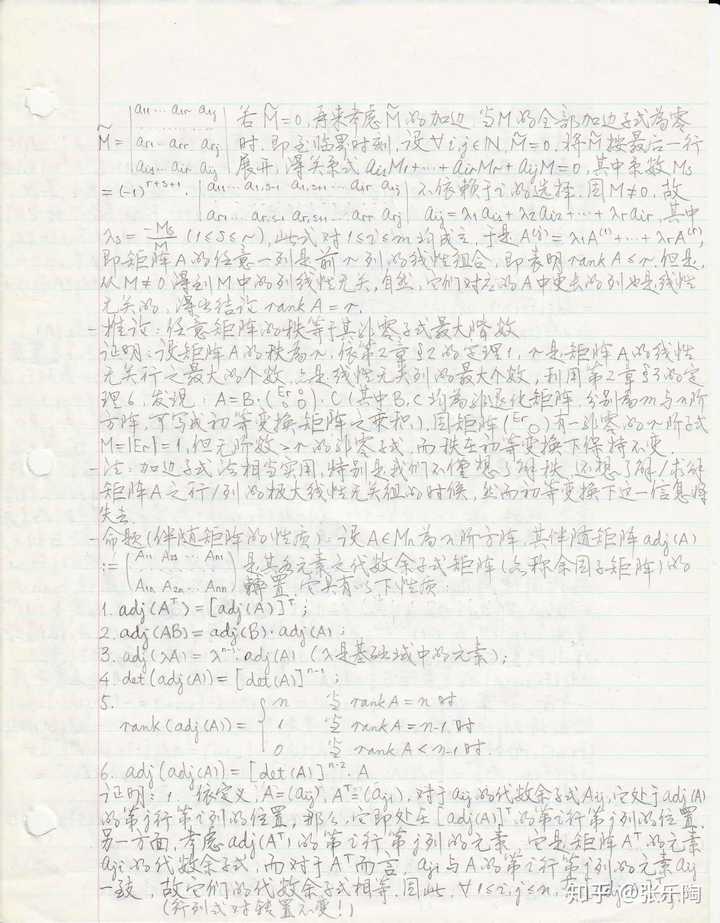 M̃ = | a₁₁ … a₁ᵣ a₁ⱼ | 若 M̃=0, 再来考虑 M̃ 的加边. 当M的全部加边子式为零
| aᵣ₁ … aᵣᵣ aᵣⱼ | 时, 即至临界时刻, 设∀i,j∈N, M̃=0. 将M̃按最后一行
| aᵢ₁ … aᵢᵣ aᵢⱼ | 展开, 得关系式 aᵢ₁M₁+…+aᵢᵣMᵣ+aᵢⱼM=0, 其中系数 Mₛ
=(-1)^{r+s+1}·| a₁₁ … a₁,ₛ₋₁ a₁,ₛ₊₁ … a₁ᵣ a₁ⱼ | 不依赖于i的选择. 因M≠0, 故
| aᵣ₁ … aᵣ,ₛ₋₁ aᵣ,ₛ₊₁ … aᵣᵣ aᵣⱼ | aᵢⱼ=λ₁aᵢ₁+λ₂aᵢ₂+…+λᵣaᵢᵣ, 其中
λₛ=-Mₛ/M (1≤s≤r), 此式对1≤i≤m均成立, 于是A^{(j)}=λ₁A^{(1)}+…+λᵣA^{(r)},
即矩阵A的任意一列是前r列的线性组合, 即表明 rank A≤r. 但是,
从M≠0得到M中的列线性无关, 自然, 它们对应的A中更长的列也是线性
无关的, 得出结论 rank A=r.
-推论: 任意矩阵的秩等于其非零子式最大阶数.
证明: 设矩阵A的秩为r, 依第2章§2的定理1, r是矩阵A的线性
无关行之最大的个数, 亦是线性无关列的最大个数, 利用第2章§3的定
理6, 发现: A=B·(Eᵣ 0 / 0 0)·C (其中B,C均为非退化矩阵, 分别为m与n阶
方阵, 可写成初等变换矩阵之乘积). 因矩阵(Eᵣ 0 / 0)有一非零的r阶子式
M=|Eᵣ|=1, 但无阶数>r的非零子式, 而秩在初等变换下保持不变.
-注: 加边子式法相当实用, 特别是我们不仅想了解秩, 还想了解/求解
矩阵A之行/列的极大线性无关组的时候, 然而初等变换下这一信息将
失去.
-命题(伴随矩阵的性质): 设A∈Mₙ为n阶方阵, 其伴随矩阵adj(A)
:=( A₁₁ A₂₁ … Aₙ₁ / … / A₁ₙ A₂ₙ … Aₙₙ ) 是其各元素之代数余子式矩阵(亦称余因子矩阵)的
转置, 它具有以下性质:
1. adj(Aᵀ)=[adj(A)]ᵀ;
2. adj(AB)=adj(B)·adj(A);
3. adj(λA)=λⁿ⁻¹·adj(A) (λ是基础域中的元素);
4. det(adj(A))=[det(A)]ⁿ⁻¹;
5. { n 当 rank A=n 时
rank(adj(A))= { 1 当 rank A=n-1 时
{ 0 当 rank A<n-1 时.
6. adj(adj(A))=[det(A)]ⁿ⁻²·A
证明: 1. 依定义, A=(aᵢⱼ), Aᵀ=(aⱼᵢ), 对于aᵢⱼ的代数余子式Aᵢⱼ, 它处于adj(A)
的第j行第i列的位置, 那么, 它即处在[adj(A)]ᵀ的第i行第j列的位置.
另一方面, 考虑adj(Aᵀ)的第i行第j列的元素, 它是矩阵Aᵀ的元素
aⱼᵢ的代数余子式, 而对于Aᵀ而言, aⱼᵢ与A的第i行第j列的元素aᵢⱼ
一致, 故它们的代数余子式相等. 因此, ∀1≤i,j≤n,
(行列式对转置不变!)
知乎 @张乐陶